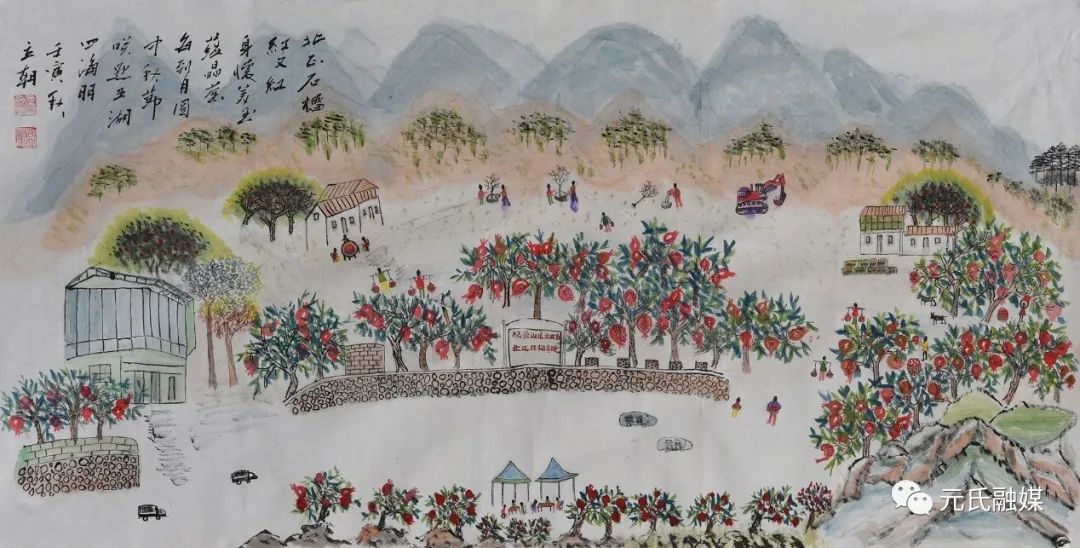 北正石榴
红又红
身懷美玉
蕴晶莹
每到月圆
中秋節
咲迎五湖
四海朋
壬寅秋
立朝
元氏融媒